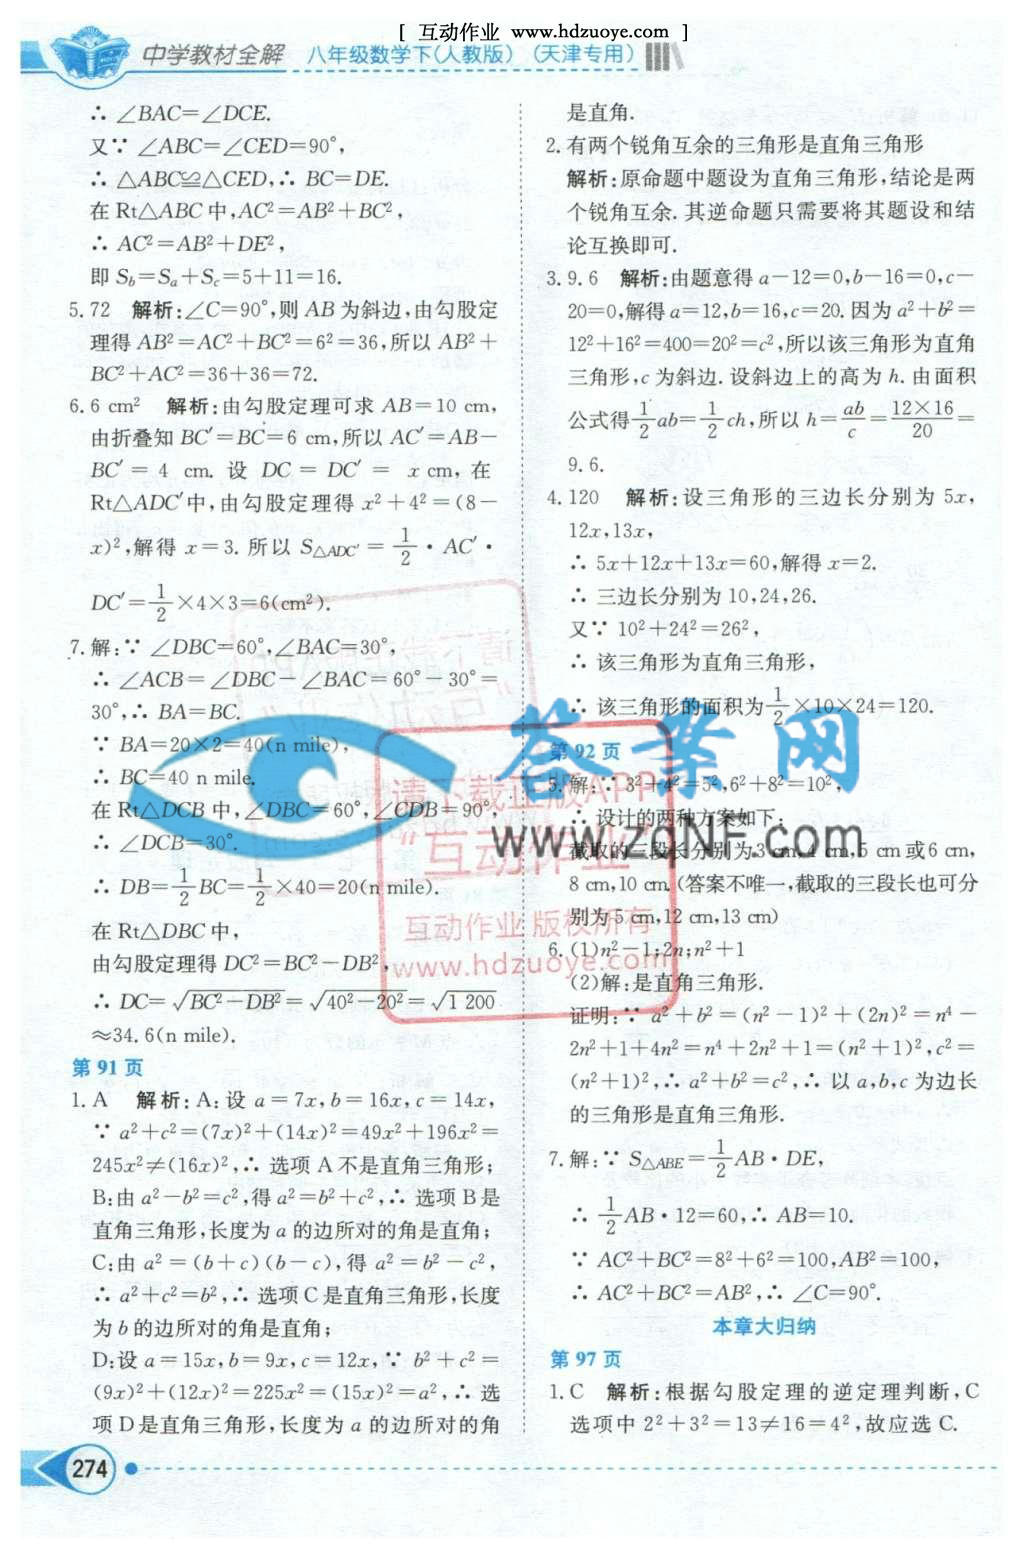 [ 互动作业 www.hdzuoye.com ]
中学教材全解 八年级数学下(人教版) (天津专用)
∴ ∠BAC=∠DCE.
又∵ ∠ABC=∠CED=90°,
∴ △ABC≌△CED,∴ BC=DE.
在 Rt△ABC 中,AC²=AB²+BC²,
∴ AC²=AB²+DE²,
即 S_b=S_a+S_c=5+11=16.
5.72 解析:∠C=90°,则 AB 为斜边,由勾股定
理得 AB²=AC²+BC²=6²=36,所以 AB²+
BC²+AC²=36+36=72.
6.6 cm² 解析:由勾股定理可求 AB=10 cm,
由折叠知 BC′=BC=6 cm,所以 AC′=AB-
BC′= 4 cm. 设 DC = DC′ = x cm, 在
Rt△ADC′中,由勾股定理得 x²+4²=(8-
x)²,解得 x=3. 所以 S△ADC′=1/2 · AC′ ·
DC′=1/2×4×3=6(cm²).
7.解:∵ ∠DBC=60°,∠BAC=30°,
∴ ∠ACB=∠DBC-∠BAC=60°-30°=
30°,∴ BA=BC.
∵ BA=20×2=40(n mile),
∴ BC=40 n mile.
在 Rt△DCB 中,∠DBC=60°,∠CDB=90°
∴ ∠DCB=30°.
∴ DB=1/2BC=1/2×40=20(n mile).
在 Rt△DBC 中,
由勾股定理得 DC²=BC²-DB²,
∴ DC=√(BC²-DB²)=√(40²-20²)=√(1 200)
≈34.6(n mile).
第 91 页
1.A 解析:A:设 a=7x,b=16x,c=14x,
∵ a²+c²=(7x)²+(14x)²=49x²+196x²=
245x²≠(16x)²,∴ 选项 A 不是直角三角形;
B:由 a²-b²=c²,得 a²=b²+c²,∴ 选项 B 是
直角三角形,长度为 a 的边所对的角是直角;
C:由 a²=(b+c)(b-c),得 a²=b²-c²,
∴ a²+c²=b²,∴ 选项 C 是直角三角形,长度
为 b 的边所对的角是直角;
D:设 a=15x,b=9x,c=12x,∵ b²+c²=
(9x)²+(12x)²=225x²=(15x)²=a²,∴ 选
项 D 是直角三角形,长度为 a 的边所对的角
是直角.
2.有两个锐角互余的三角形是直角三角形
解析:原命题中题设为直角三角形,结论是两
个锐角互余. 其逆命题只需要将其题设和结
论互换即可.
3.9.6 解析:由题意得 a-12=0,b-16=0,c-
20=0,解得 a=12,b=16,c=20. 因为 a²+b²=
12²+16²=400=20²=c²,所以该三角形为直角
三角形,c 为斜边. 设斜边上的高为 h. 由面积
公式得1/2ab=1/2ch,所以 h=ab/c=12×16/20=
9.6.
4.120 解析:设三角形的三边长分别为 5x,
12x,13x,
∴ 5x+12x+13x=60,解得 x=2.
∴ 三边长分别为 10,24,26.
又∵ 10²+24²=26²,
∴ 该三角形为直角三角形,
∴ 该三角形的面积为1/2×10×24=120.
第 92 页
5.解:∵ 3²+4²=5²,6²+8²=10²,
∴ 设计的两种方案如下:
截取的三段长分别为 3 cm,4 cm,5 cm 或 6 cm,
8 cm,10 cm. (答案不唯一,截取的三段长也可分
别为 5 cm,12 cm,13 cm)
6.(1)n²-1;2n;n²+1
(2)解:是直角三角形.
证明:∵ a²+b²=(n²-1)²+(2n)²=n⁴-
2n²+1+4n²=n⁴+2n²+1=(n²+1)²,c²=
(n²+1)²,∴ a²+b²=c²,∴ 以 a,b,c 为边长
的三角形是直角三角形.
7.解:∵ S△ABE=1/2AB·DE,
∴ 1/2AB·12=60,∴ AB=10.
∵ AC²+BC²=8²+6²=100,AB²=100,
∴ AC²+BC²=AB²,∴ ∠C=90°.
本章大归纳
第 97 页
1.C 解析:根据勾股定理的逆定理判断,C
选项中 2²+3²=13≠16=4²,故应选 C.
274
答案网
www.zdNF.com
请下载正版APP
“互动作业”
互动作业 版权所有
www.hdzuoye.com